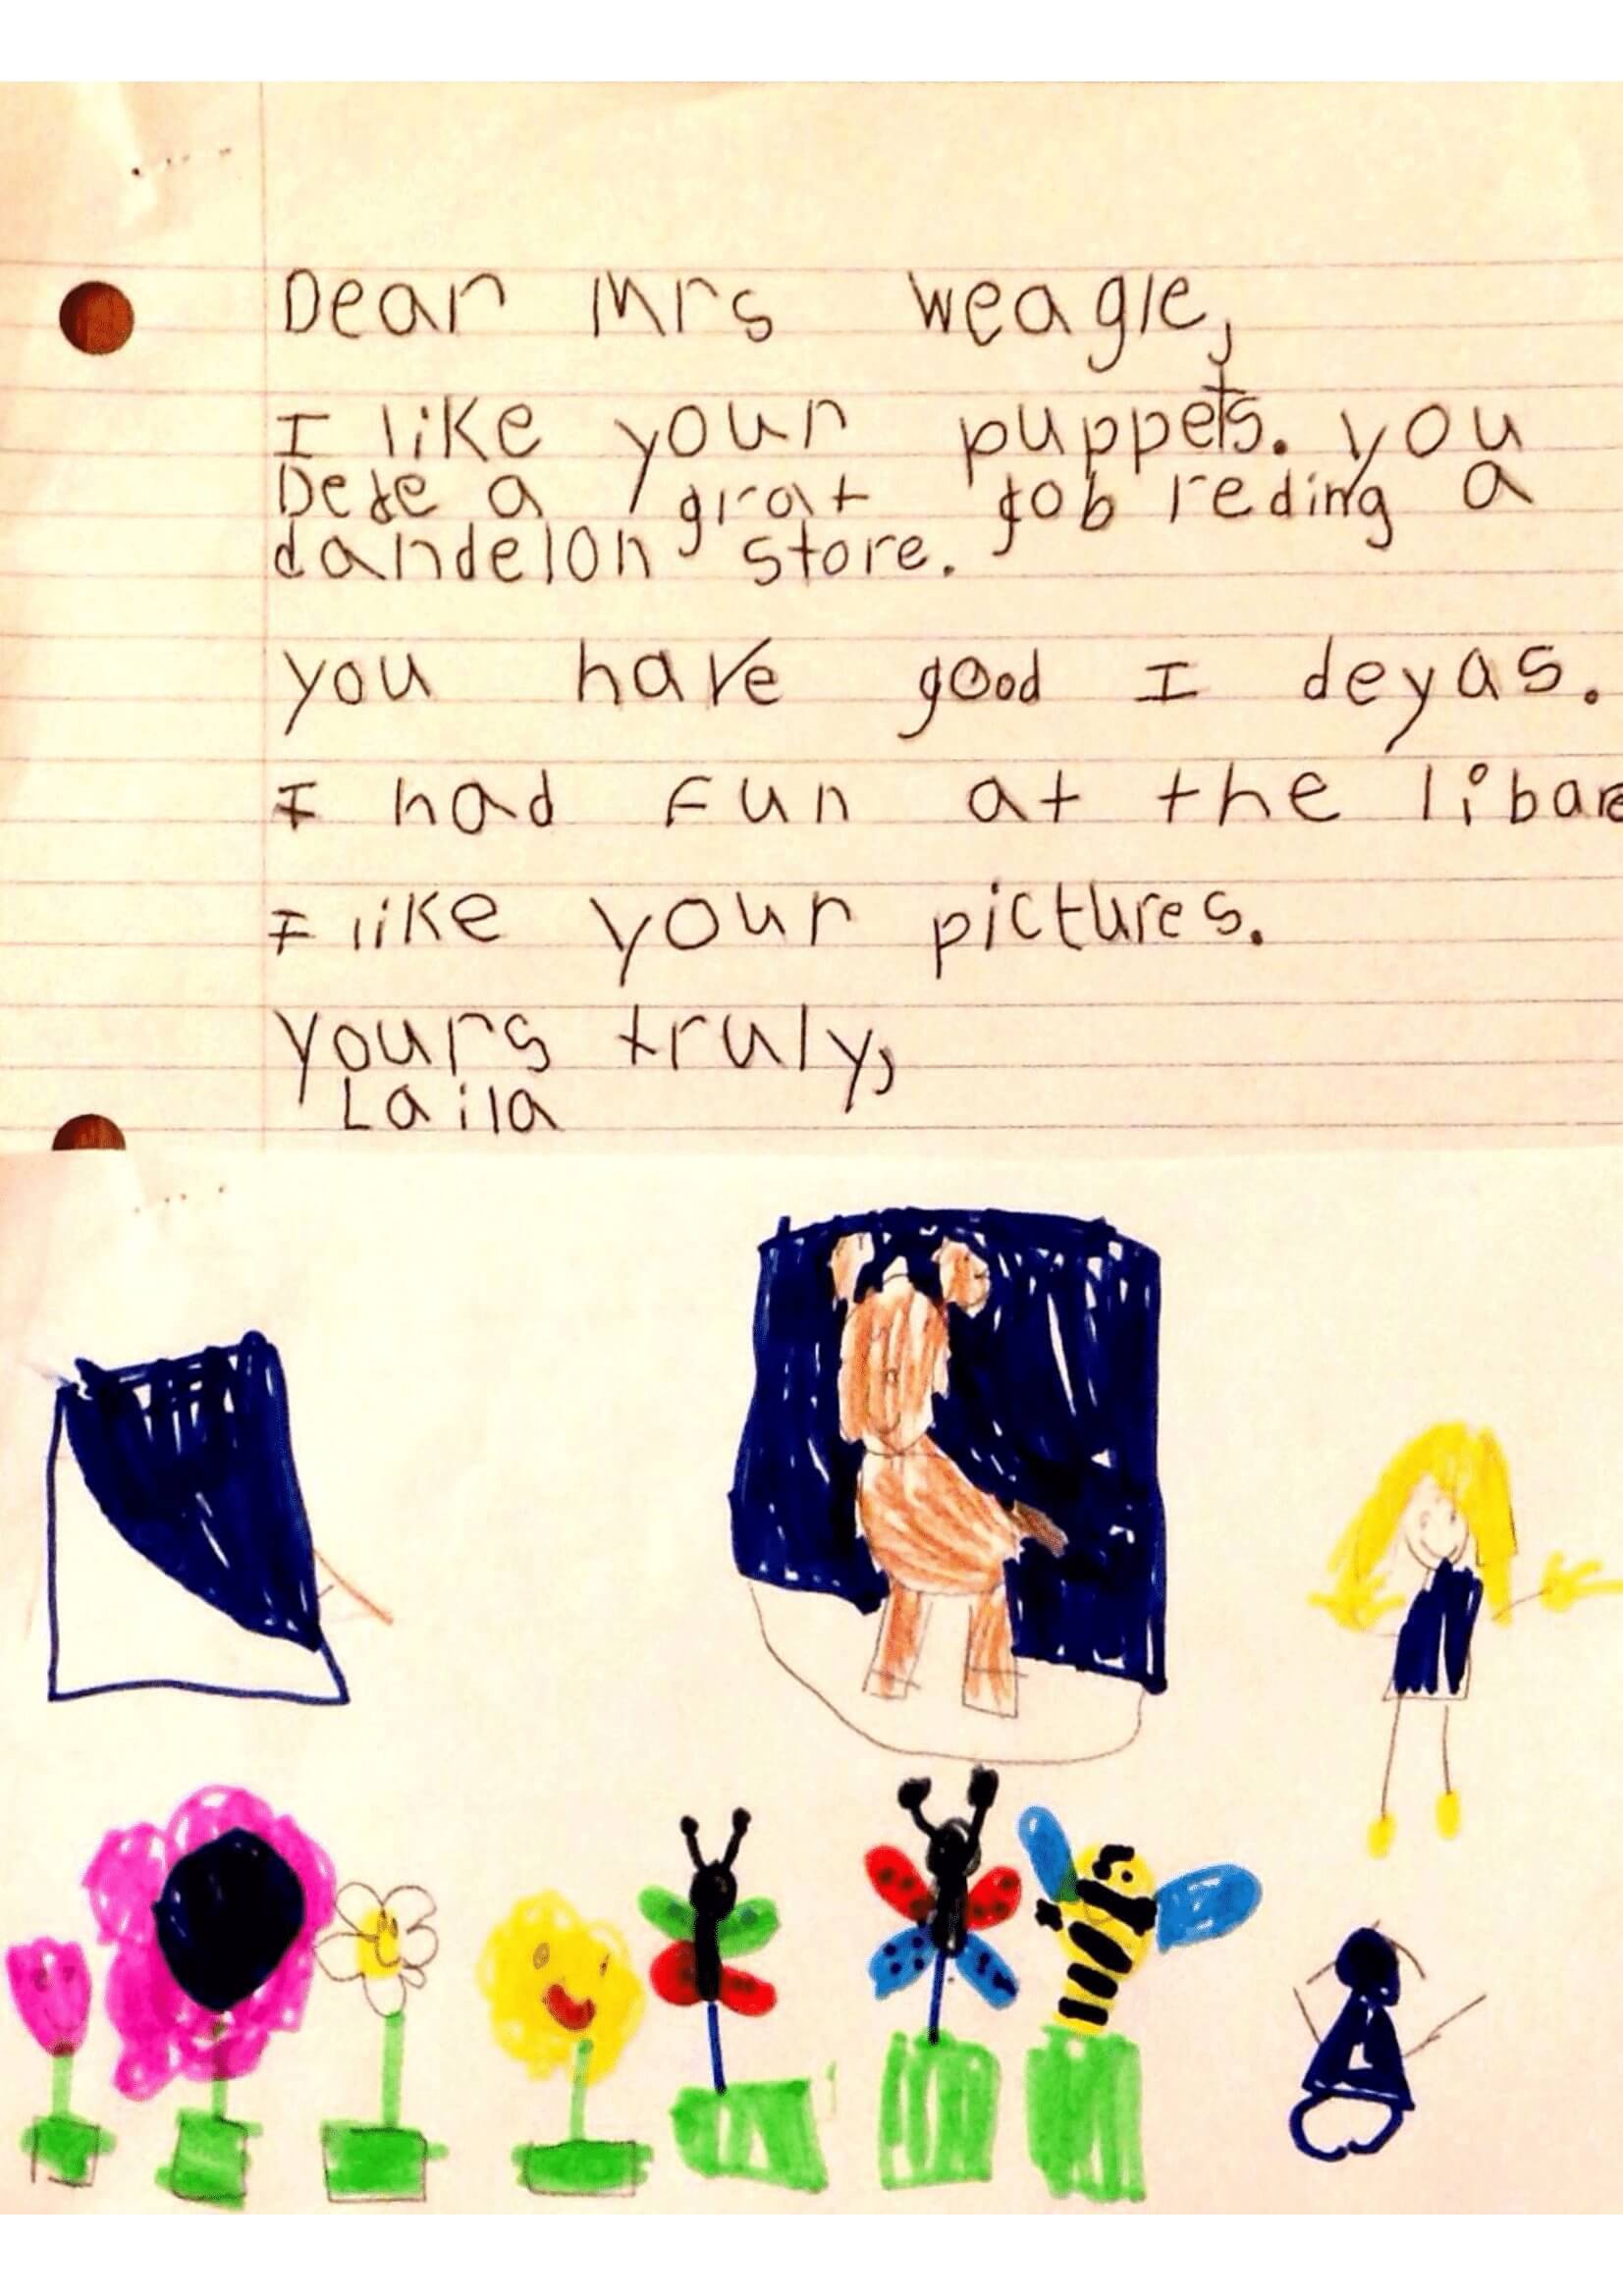 Dear Mrs Weagle,
I like your puppets. you
Dede a grat job reding a
dandelon store.
you have good I deyas.
I had Fun at the libare
I like your pictures.
yours truly,
Laila